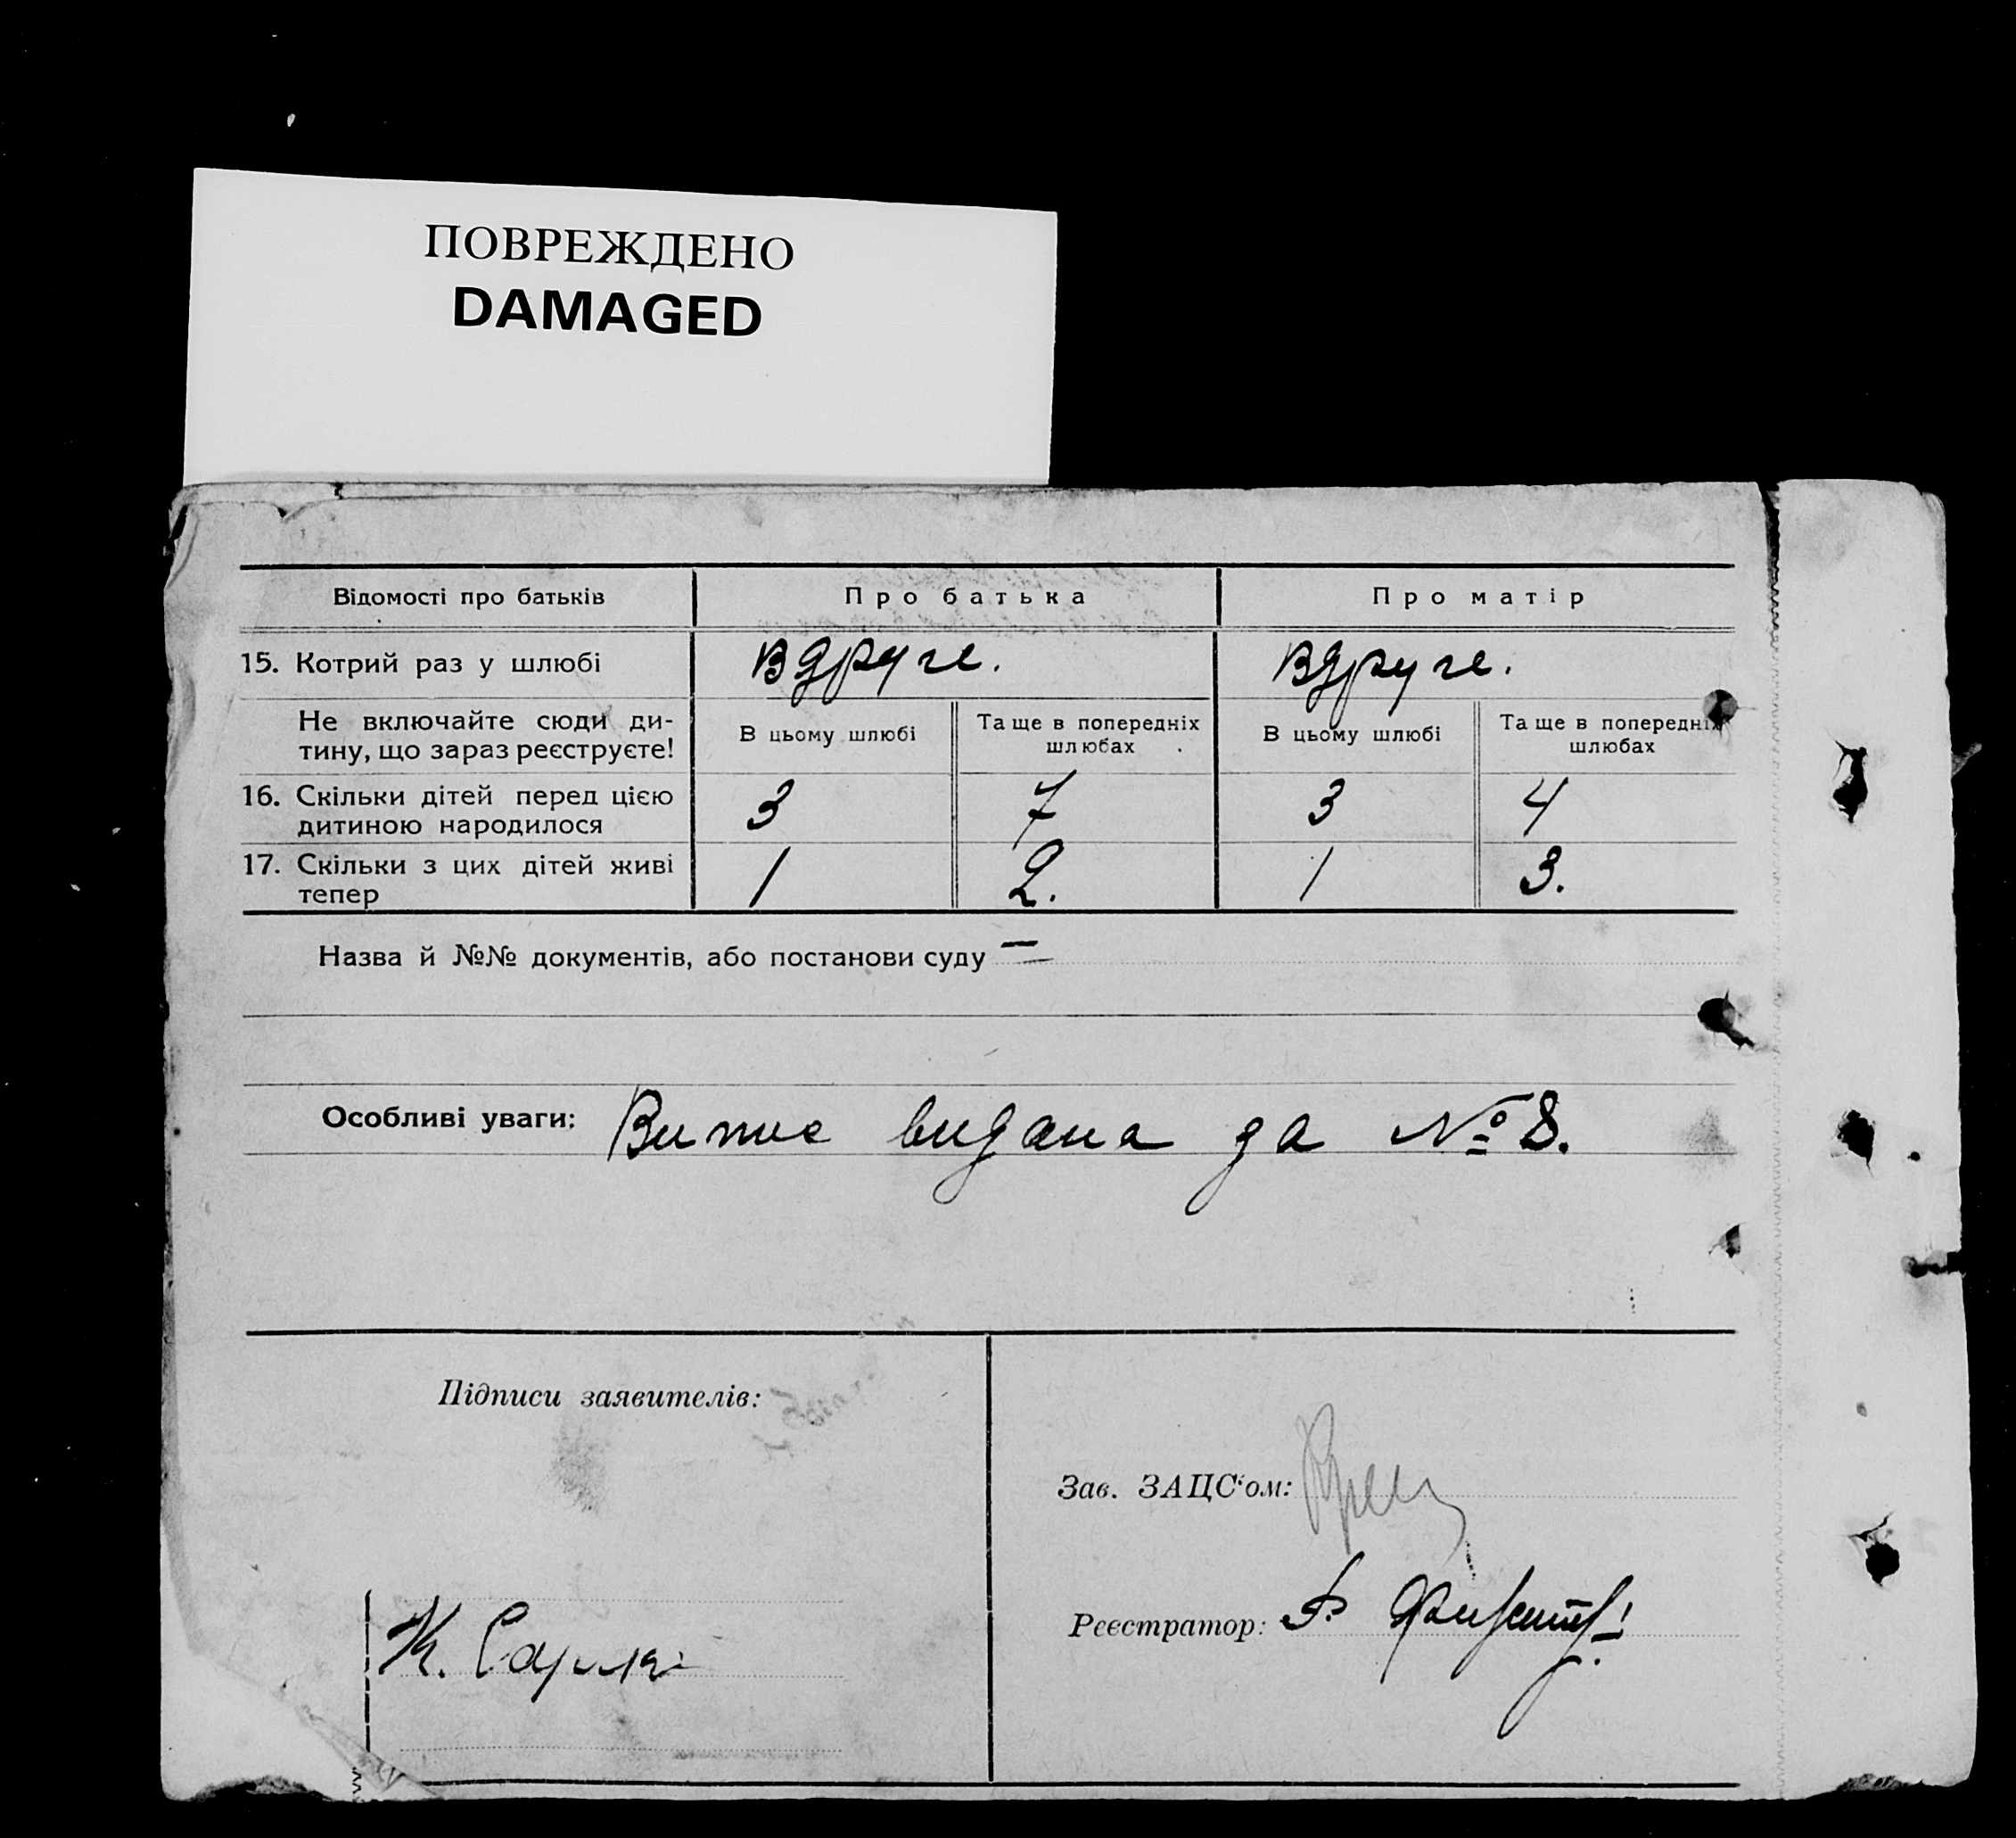 ПОВРЕЖДЕНО
DAMAGED
Відомості про батьків Про батька Про матір
15. Котрий раз у шлюбі вдруге. вдруге.
Не включайте сюди ди-
тину, що зараз реєструєте!
В цьому шлюбі Та ще в попередніх шлюбах В цьому шлюбі Та ще в попередніх шлюбах
16. Скільки дітей перед цією
дитиною народилося 3 7 3 4
17. Скільки з цих дітей живі
тепер 1 2. 1 3.
Назва й №№ документів, або постанови суду —
Особливі уваги: Випис видана за № 8.
Підписи заявителів:
Зав. ЗАЦС'ом:
Реєстратор:
К.